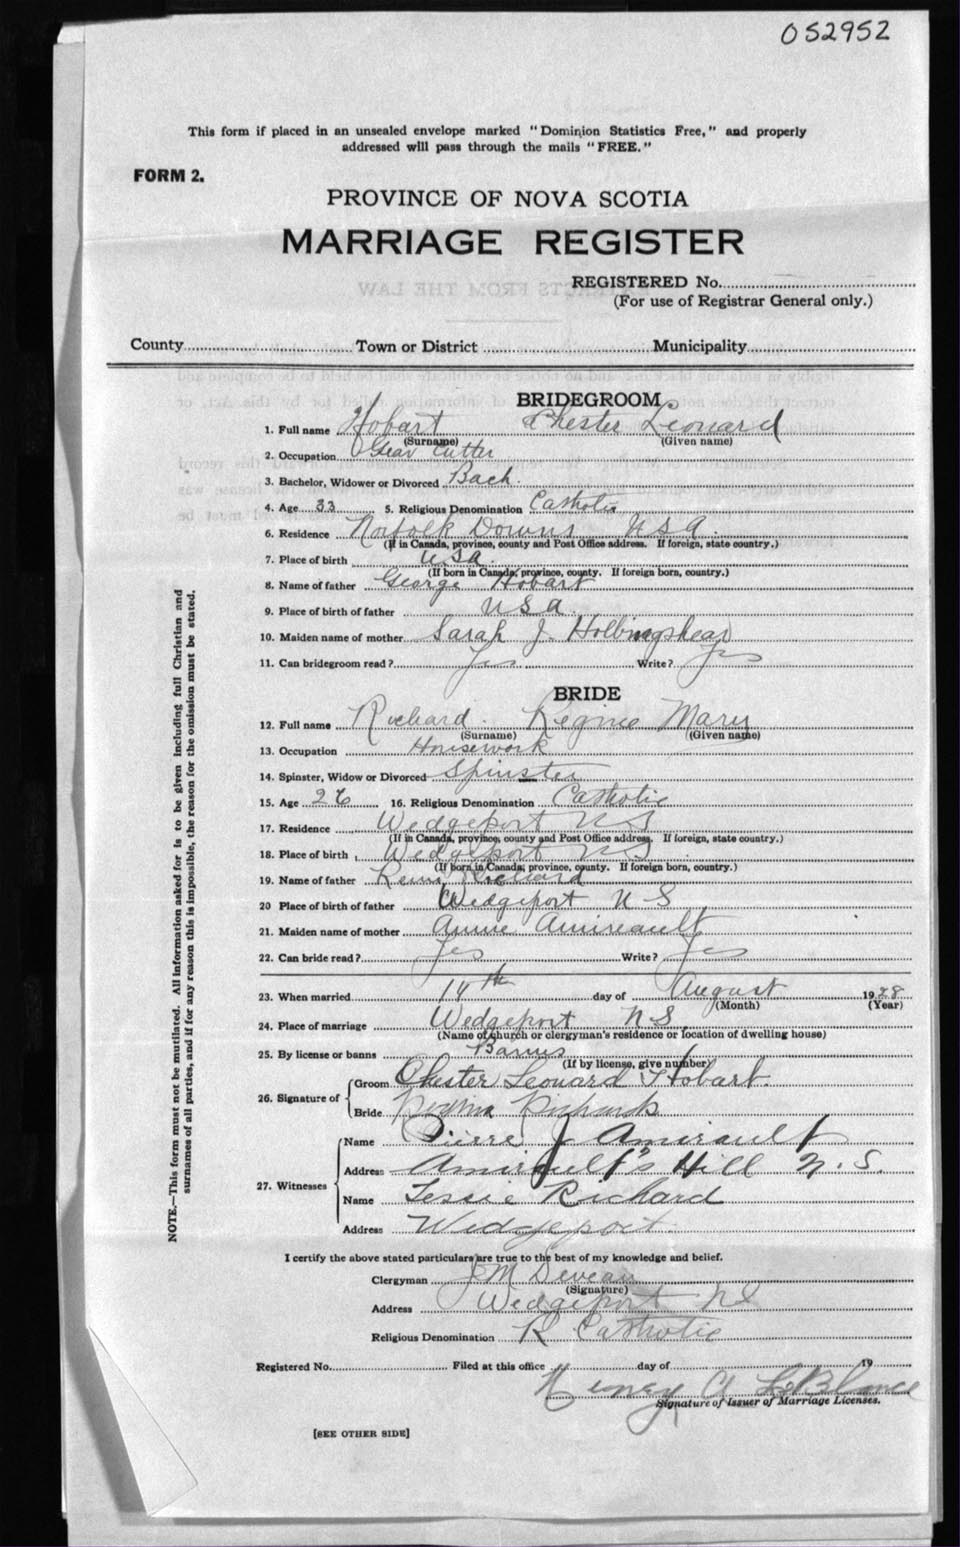 052952
This form if placed in an unsealed envelope marked "Dominion Statistics Free," and properly
addressed will pass through the mails "FREE."
FORM 2.
PROVINCE OF NOVA SCOTIA
MARRIAGE REGISTER
REGISTERED No.
(For use of Registrar General only.)
County Town or District Municipality
BRIDEGROOM
1. Full name Hobart Chester Leonard
(Surname) (Given name)
2. Occupation Gear Cutter
3. Bachelor, Widower or Divorced Bach.
4. Age 33 5. Religious Denomination Catholic
6. Residence Norfolk Downs USA
(If in Canada, province, county and Post Office address. If foreign, state country.)
7. Place of birth USA.
(If born in Canada, province, county. If foreign born, country.)
8. Name of father George Hobart
9. Place of birth of father USA.
10. Maiden name of mother Sarah J. Hollingshead
11. Can bridegroom read? Yes Write? Yes
BRIDE
12. Full name Richard. Regina Mary
(Surname) (Given name)
13. Occupation Housework
14. Spinster, Widow or Divorced Spinster
15. Age 26 16. Religious Denomination Catholic
17. Residence Wedgeport NS
(If in Canada, province, county and Post Office address. If foreign, state country.)
18. Place of birth Wedgeport NS
(If born in Canada, province, county. If foreign born, country.)
19. Name of father Remi Richard
20 Place of birth of father Wedgeport NS
21. Maiden name of mother Annie Amireault
22. Can bride read? Yes Write? Yes
23. When married 14th day of August 1928
(Month) (Year)
24. Place of marriage Wedgeport NS.
(Name of church or clergyman's residence or location of dwelling house)
25. By license or banns Banns
(If by license, give number)
26. Signature of Groom Chester Leonard Hobart.
Bride Regina Richards
27. Witnesses Name Pierre J Amirault
Address Amirault's Hill N.S.
Name Jessie Richard
Address Wedgeport.
I certify the above stated particulars are true to the best of my knowledge and belief.
Clergyman J M Deveau
(Signature)
Address Wedgeport NS
Religious Denomination R Catholic
Registered No. Filed at this office day of 19
Henry A LeBlanc
Signature of Issuer of Marriage Licenses.
[SEE OTHER SIDE]
NOTE.—This form must not be mutilated. All information asked for is to be given including full Christian and
surnames of all parties, and if for any reason this is impossible, the reason for the omission must be stated.